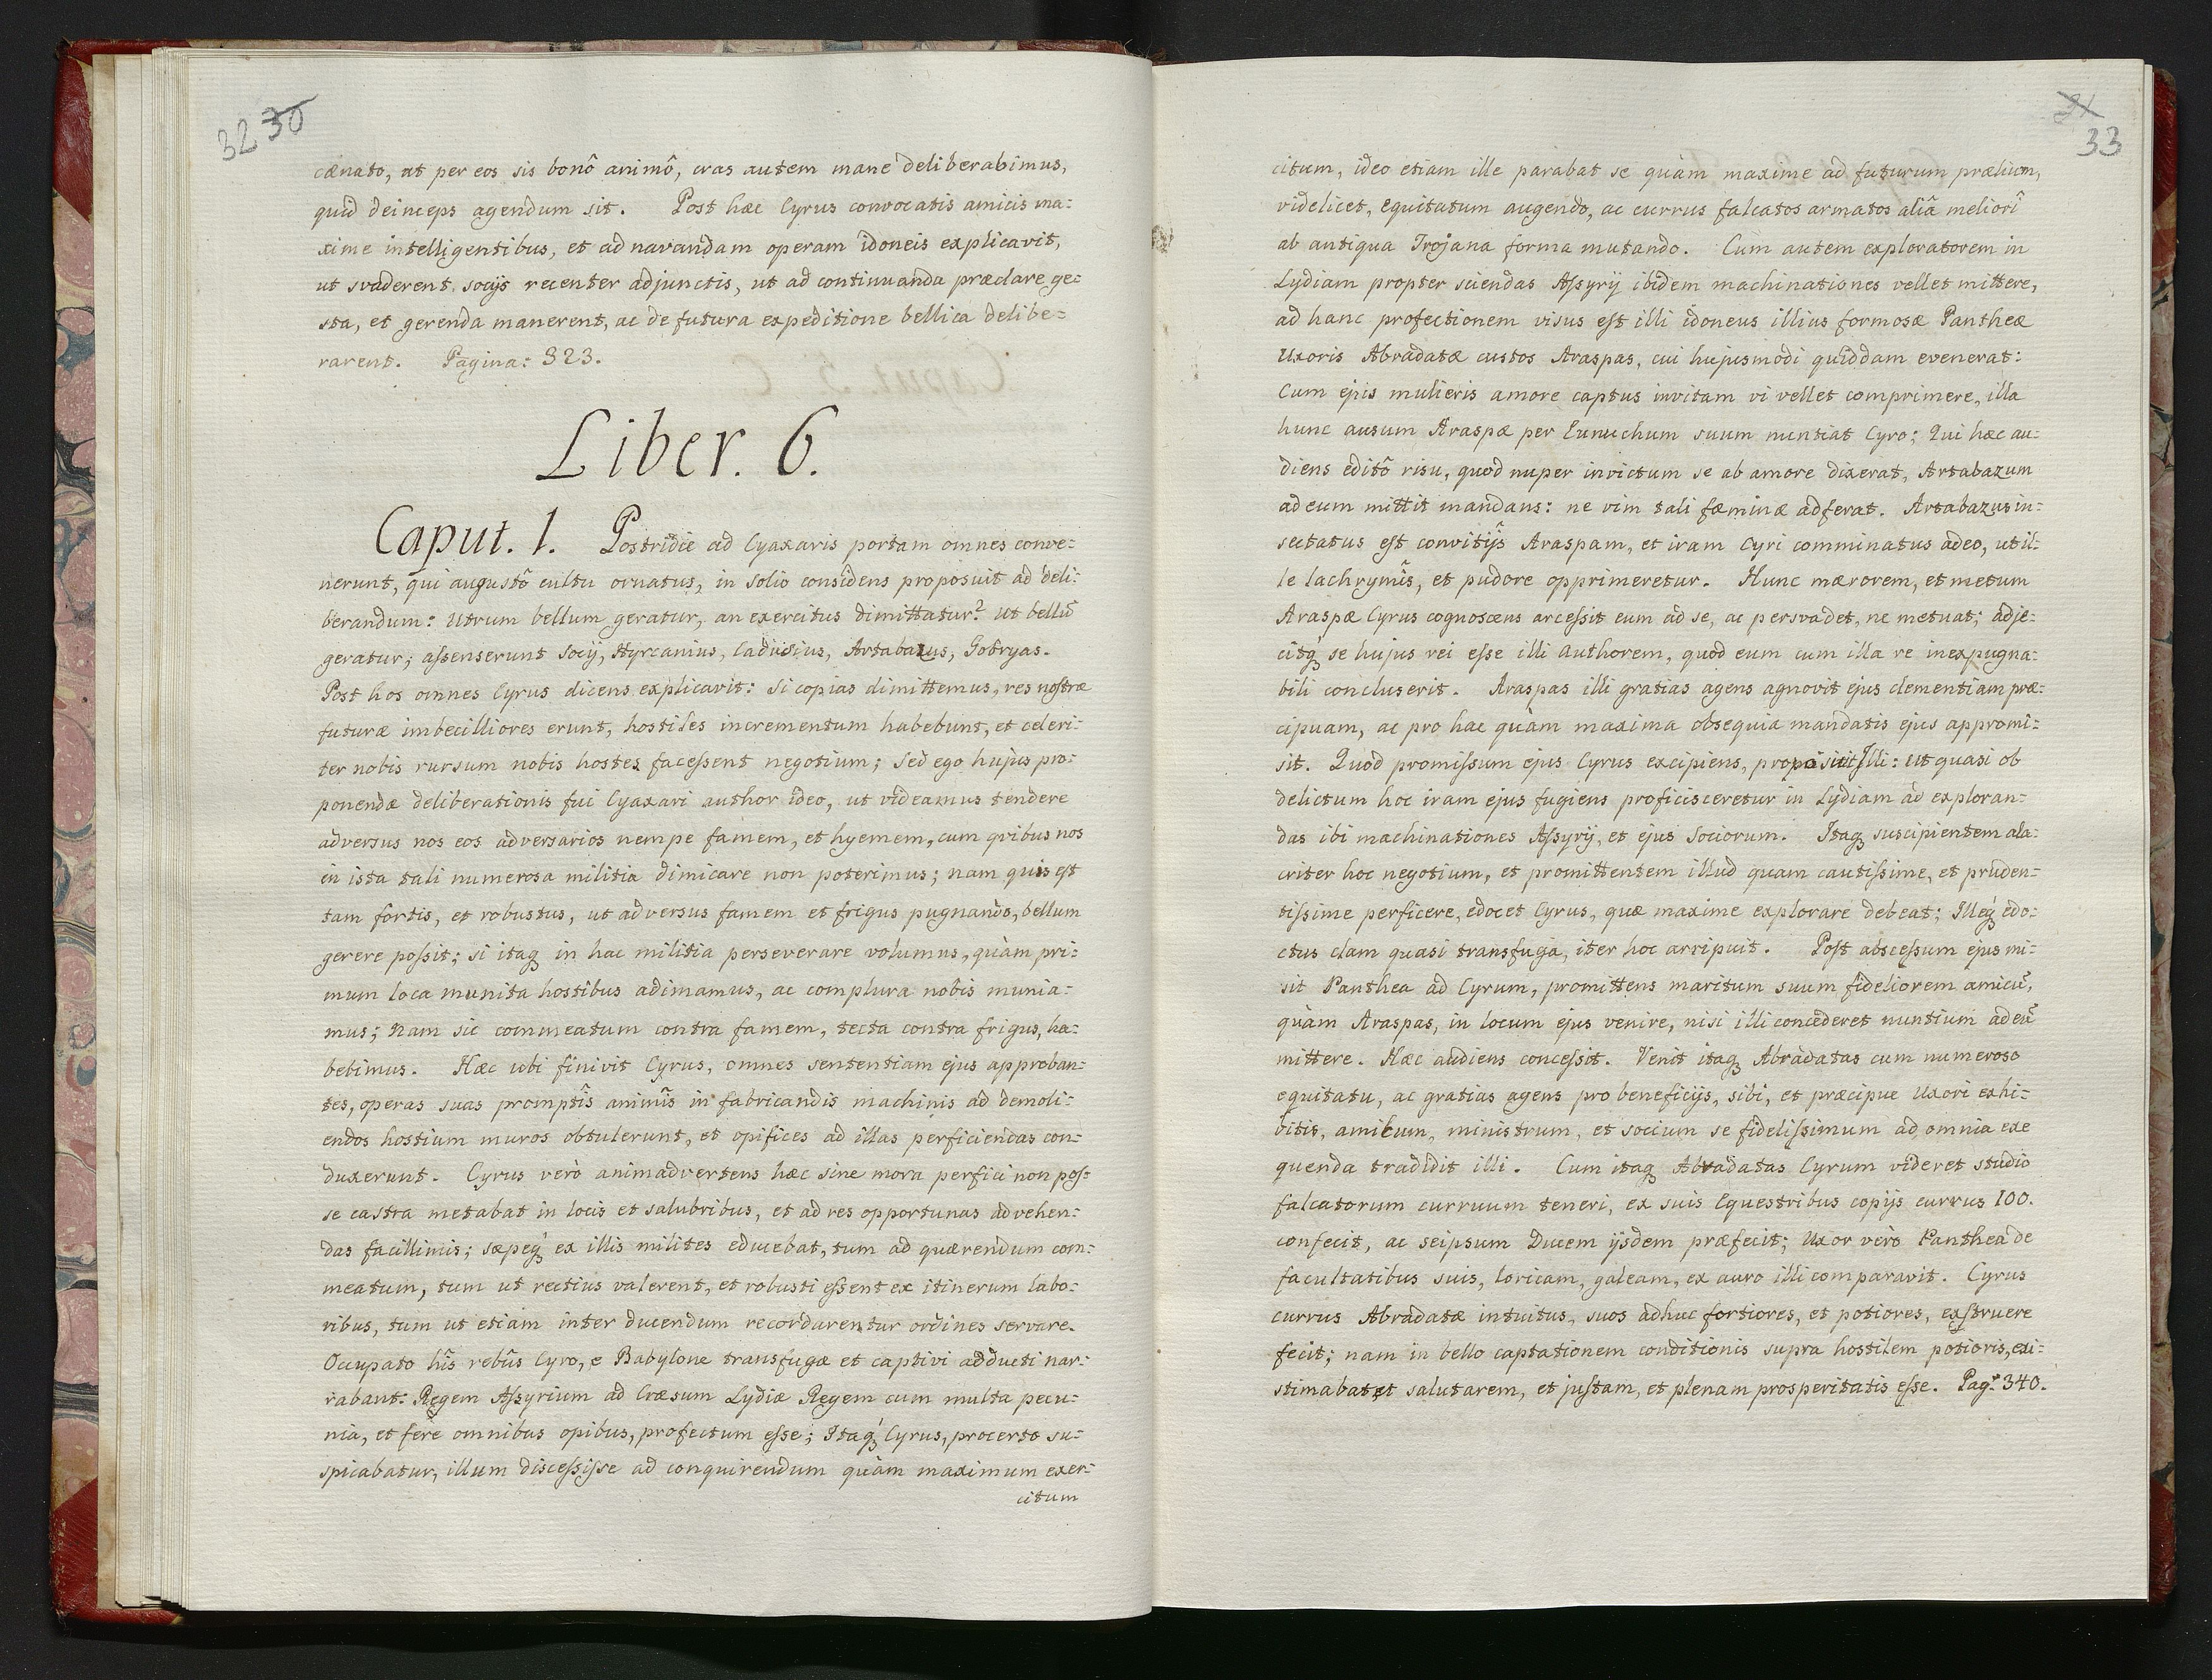 32 30
cænato, at per eos sis bonô animô, cras autem manè deliberabimus,
quid deinceps agendum sit. Post hæc Cyrus convocatis amicis ma:
xime intelligentibus, et ad navandam operam idoneis explicavit,
ut svaderent socijs recenter adjunctis, ut ad continuanda præclare ge:
sta, et gerenda manerent, ac de futura expeditione bellica delibe:
rarent. Pagina: 323.
Liber. 6.
Caput. 1. Postridie ad Cyaxaris portam omnes conve:
nerunt, qui augustô cultu ornatus, in solio considens proposuit ad deli:
berandum: Utrum bellum geratur, an exercitus dimittatur? Ut bellũ
geratur; aſsenserunt socij, Hyrcanius, Cadusius, Artabazus, Gobryas.
Post hos omnes Cyrus dicens explicavit: si copias dimittemus, res nostræ
futuræ imbecilliores erunt, hostiles incrementum habebunt, et celeri:
ter nobis rursum nobis hostes faceſsent negotium; Sed ego hujus pro:
ponendæ deliberationis fui Cyaxari author ideo, ut videamus tendere
adversus nos eos adversarios nempe famem, et hyemem, cum qvibus nos
in ista tali numerosa militia dimicare non poterimus; nam quis est
tam fortis, et robustus, ut adversus famem et frigus pugnando, bellum
gerere poſsit; si itaq in hac militia perseverare volumus, quàm pri:
mum loca munita hostibus adimamus, ac complura nobis munia:
mus; nam sic commeatum contra famem, tecta contra frigus, ha:
bebimus. Hæc ubi finivit Cyrus, omnes sententiam ejus approban:
tes, operas suas promptîs animîs in fabricandis machinis ad demoli:
endos hostium muros obtulerunt, et opifices ad illas perficiendas con:
duxerunt. Cyrus verò animadvertens hæc sine mora perfici non poſ:
se castra metabat in locis et salubribus, et ad res opportunas advehen:
das facillimis; sæpeq́ ex illis milites educebat, tum ad quærendum com:
meatum, tum ut rectius valerent, et robusti eſsent ex itinerum labo:
ribus, tum ut etiam inter ducendum recordarentur ordines servare.
Occupato hîs rebûs Cyro, e Babylone transfugæ et captivi adducti nar:
rabant: Regem Aſsyrium ad Cræsum Lydiæ Regem cum multa pecu:
nia, et ferè omnibus opibus, profectum eſse; Itaq́ Cyrus, pro certo su:
spicabatur, illum disceſsiſse ad conquirendum quàm maximum exer:
citum
31
33
citum, ideo etiam ille parabat se quàm maxime ad futurum prælium,
videlicet, equitatum augendo, ac currus falcatos armatos aliâ meliorî
ab antiqua Trojana forma mutando. Cum autem exploratorem in
Lydiam propter sciendas Aſsyrij ibidem machinationes vellet mittere,
ad hanc profectionem visus est illi idoneus illius formosæ Pantheæ
Uxoris Abradatæ custos Araspas, cui hujusmodi quiddam evenerat:
Cum ejus mulieris amore captus invitam vi vellet comprimere, illa
hunc ausum Araspæ per Eunuchum suum nuntiat Cyro; Qui hæc au:
diens editô risu, quod nuper invictum se ab amore dixerat, Artabazum
ad eum mittit mandans: ne vim tali fæminæ adferat. Artabazus in:
sectatus est convitijs Araspam, et iram Cyri comminatus adeo, ut il:
le lachrymîs, et pudore opprimeretur. Hunc mærorem, et metum
Araspæ Cyrus cognoscens arceſsit eum ad se, ac persvadet, ne metuat; adje:
citq́ se hujus rei eſse illi authorem, quod eum cum illa re inexpugna:
bili concluserit. Araspas illi gratias agens agnovit ejus clementiam præ:
cipuam, ac pro hac quàm maxima obsequia mandatis ejus appromi:
sit. Quod promiſsum ejus Cyrus excipiens, proposuit Illi: ut quasi ob
delictum hoc iram ejus fugiens proficisceretur in Lydiam ad exploran:
das ibi machinationes Aſsyrij, et ejus Sociorum. Itaq suscipientem ala:
criter hoc negotium, et promittentem illud quam cautiſsime, et pruden:
tiſsime perficere, edocet Cyrus, quæ maxime explorare debeat; Illeq́ edo:
ctus clam quasi transfuga, iter hoc arripuit. Post absceſsum ejus mi:
sit Panthea ad Cyrum, promittens maritum suum fideliorem amicũ,
quàm Araspas, in locum ejus venire, nisi illi concederet nuntium ad eũ
mittere. Hæc audiens conceſsit. Venit itaq Abradatas cum numeroso
equitatu, ac gratias agens pro beneficijs, sibi, et præcipue Uxori exhi:
bitis, amicum, ministrum, et socium se fideliſsimum ad omnia exe
quenda tradidit illi. Cum itaq Abradatas Cyrum videret studio
falcatorum curruum teneri, ex suis Equestribus copijs currus 100.
confecit, ac seipsum Ducem ijsdem præfecit; Uxor verò Panthea de
facultatibus suis, loricam, galeam, ex auro illi comparavit. Cyrus
currus Abradatæ intuitus, suos adhuc fortiores, et potiores, exstruere
fecit; nam in bello captationem conditionis supra hostilem potioris, exi:
stimabat et salutarem, et justam, et plenam prosperitatis eſse. Pag: 340.